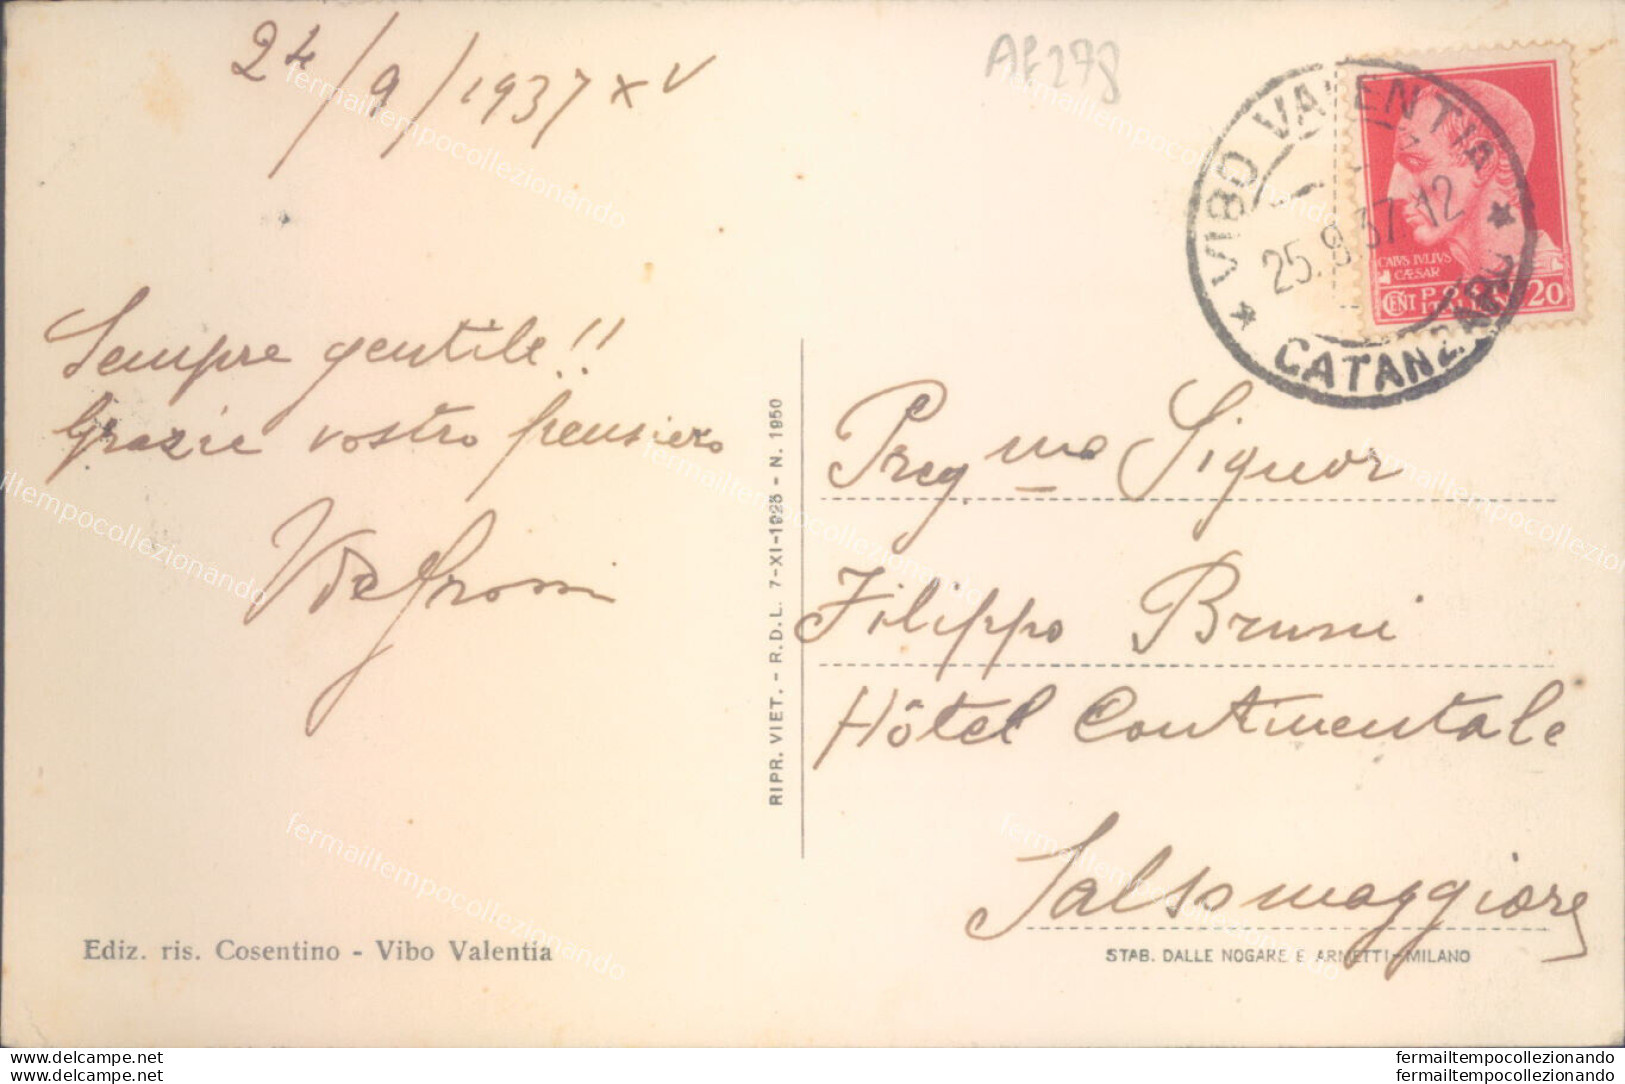 24/9/1937 XV
AF278
VIBO VALENTIA
25.9.37.12
CATANZARO
CAIVS IVLIVS
CÆSAR
CENT POSTE 20
ITALIANE
Sempre gentile!!
Grazie vostro pensiero
RIPR. VIET. - R.D.L. 7-XI-1925 - N. 1950
Preg.mo Signor
Filippo Bruni
Hôtel Continentale
Salsomaggiore
Ediz. ris. Cosentino - Vibo Valentia
STAB. DALLE NOGARE E ARMETTI - MILANO
fermailtempocollezionando
ebay.delcampe.net
ebay.delcampe.net
fermailtempocollezionando
fermailtempocollezionando